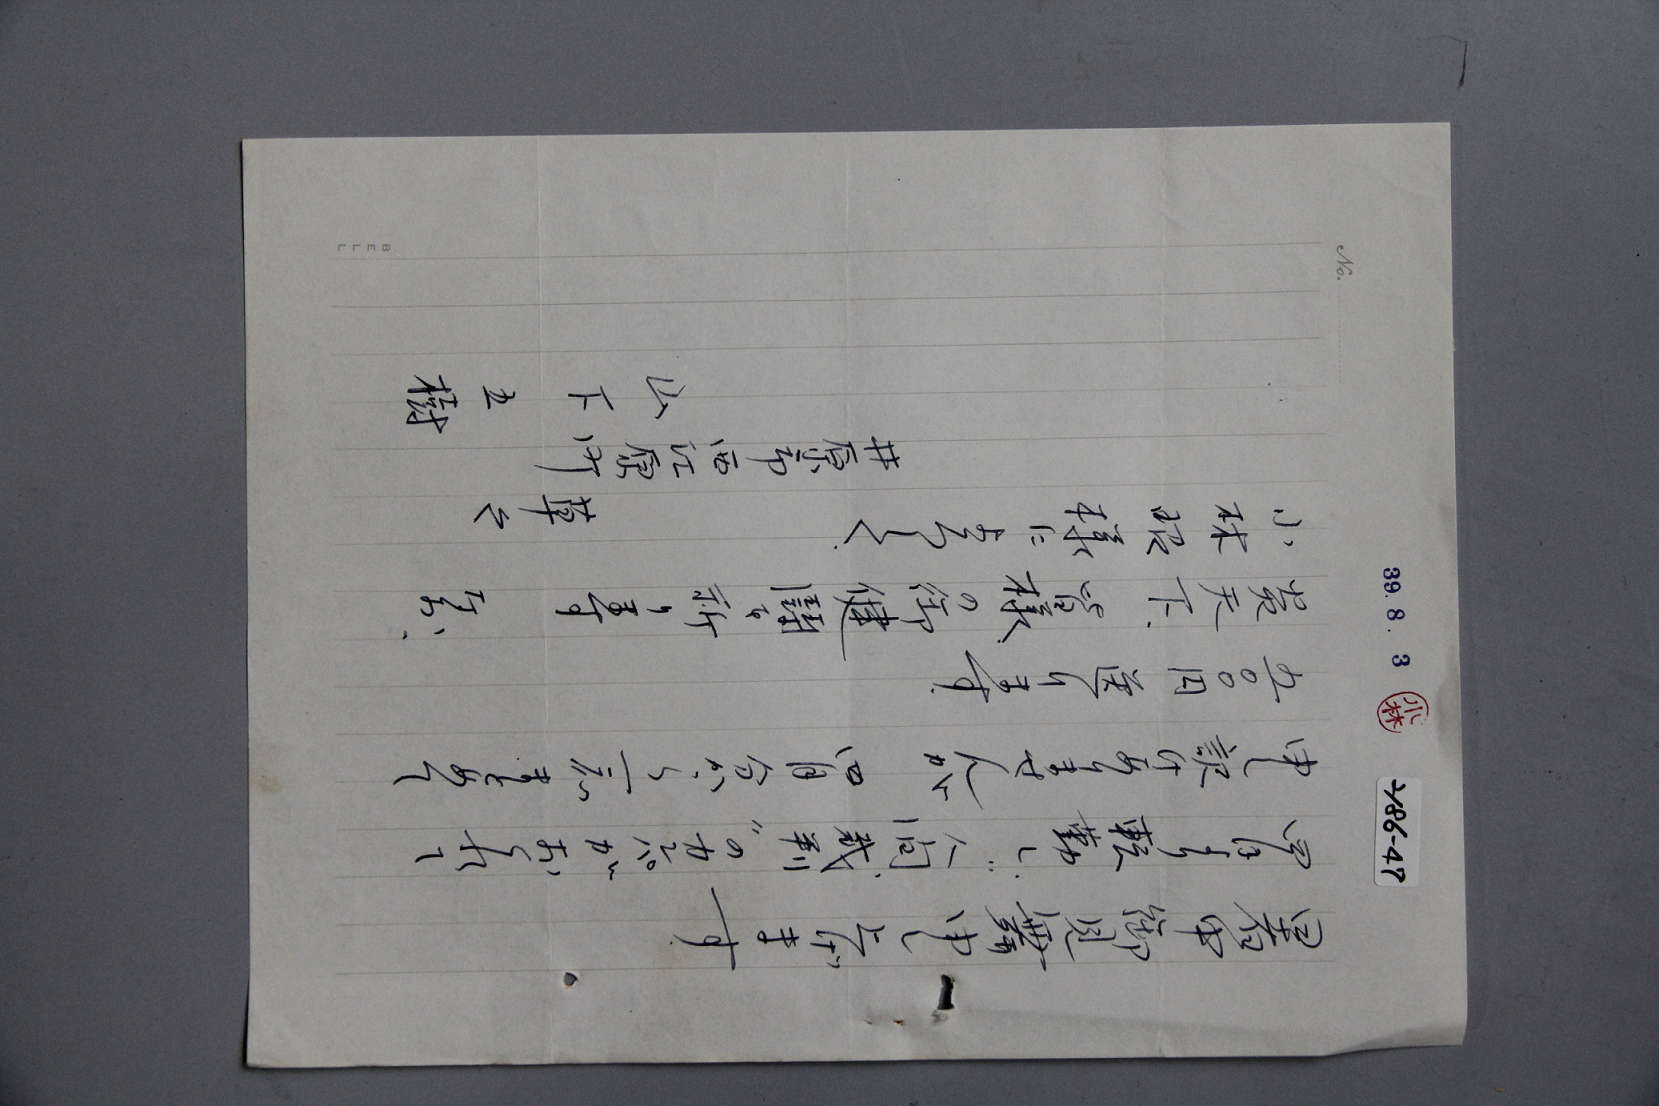 暑中御見舞申上げます
四月より転勤し、“人間裁判”のカンパがおくれて
申訳けありませんが 四月分から一応まとめて
五〇〇円送ります
炎天下、皆様の御健闘を祈ります 尚、
小林 様によろしく、
草々
井原市西江原町
山下 樹
39. 8. 3
小林
486-47
No.
BELL